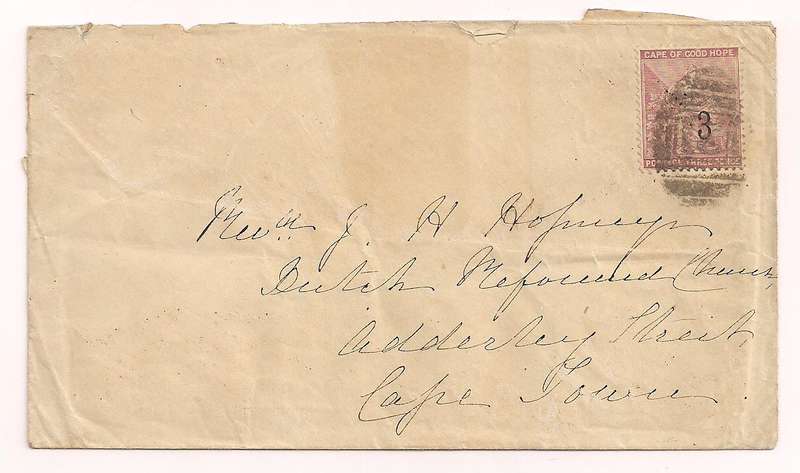 CAPE OF GOOD HOPE
3
POSTAGE THREE PENCE
Revd. J. H Hofmeyr
Dutch Reformed Church,
Adderley Street,
Cape Town